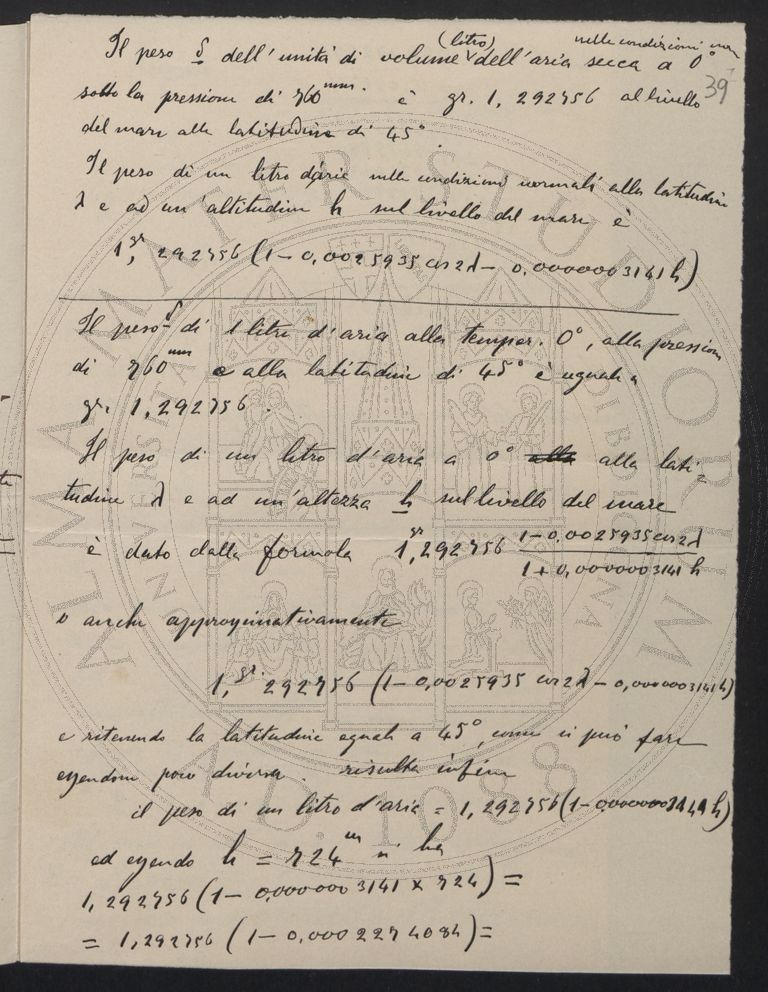 Il peso δ dell'unità di volume (litro) dell'aria secca a 0°
nelle condizioni
39
sotto la pressione di 760 mm. è gr. 1,292756 al livello
del mare alla latitudine di 45°.
Il peso di un litro d'aria nelle condizioni normali alla latitudine
λ e ad un'altitudine h sul livello del mare è
1,gr 292756 (1 − 0,0025935 cos 2λ − 0,0000003141 h)
Il peso δ di 1 litro d'aria alla temper. 0°, alla pressione
di 760 mm e alla latitudine di 45° è uguale a
gr. 1,292756.
Il peso di un litro d'aria a 0° alla alla lati-
tudine λ e ad un'altezza h sul livello del mare
è dato dalla formola 1,gr 292756 (1 − 0,0025935 cos 2λ) / (1 + 0,0000003141 h)
o anche approssimativamente
1,gr 292756 (1 − 0,0025935 cos 2λ − 0,0000003141 h)
e ritenendo la latitudine eguale a 45°, come si può fare
essendone poco diversa. risulta infine
il peso di un litro d'aria = 1,292756 (1 − 0,0000003141 h)
ed essendo h = 724 m si ha
1,292756 (1 − 0,0000003141 × 724) =
= 1,292756 (1 − 0,0002274084) =
ALMA MATER STUDIORUM
A.D. 1088